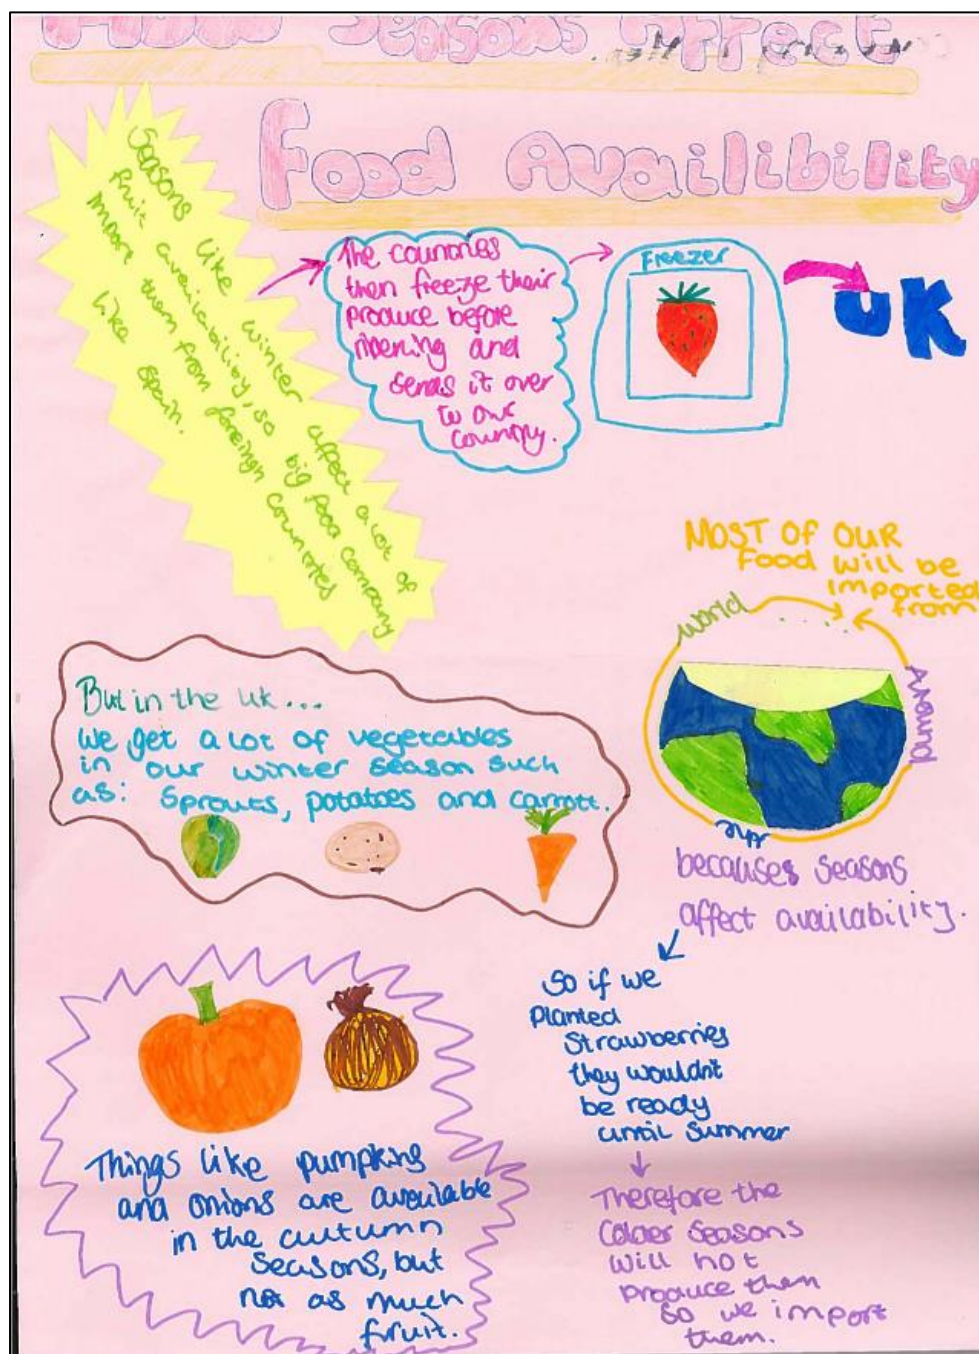 How Seasons Affect
Food Availibility
Seasons like winter affect a lot of
fruit availability, so big food company
import them from foreingh countries
like spain.
The countries
then freeze their
produce before
ripening and
sends it over
to our
country.
Freezer
UK
MOST OF OUR
food will be
imported
from
All
Around
World
becauses seasons
affect availability.
But in the uk...
We get a lot of vegetables
in our winter season such
as: Sprouts, potatoes and carrott.
So if we
planted
Strawberries
they wouldn't
be ready
until summer
Therefore the
colder seasons
will not
produce them
so we import
them.
Things like pumpkins
and onions are available
in the autumn
seasons, but
not as much
fruit.